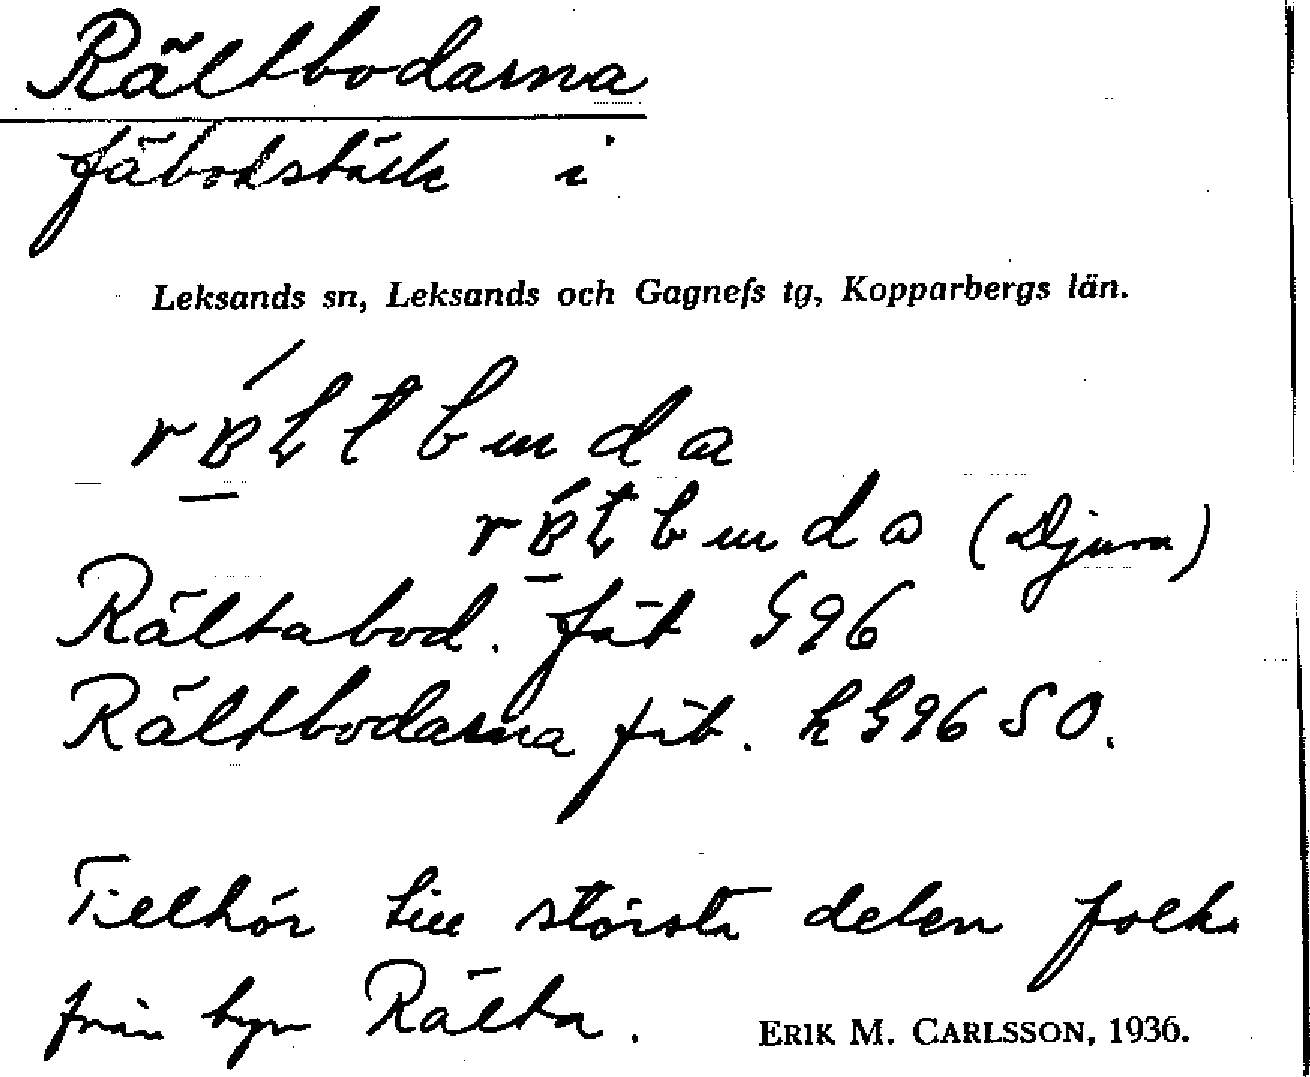 Rältbodarna
fäbodställe i
Leksands sn, Leksands och Gagnefs tg, Kopparbergs län.
(Djura)
Rältabod. fäb G96
Rältbodarna fäb. hG96 SO.
Tillhör till största delen folk
från byn Rälta.
ERIK M. CARLSSON, 1936.